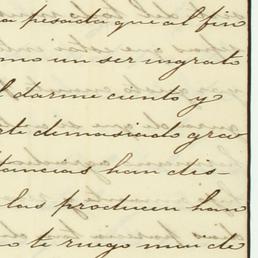 a pesada que al fin
mo un ser ingrato
l darme ciento y
rte demasiado gra
tancias han dis-
las producen han
o te ruego que de